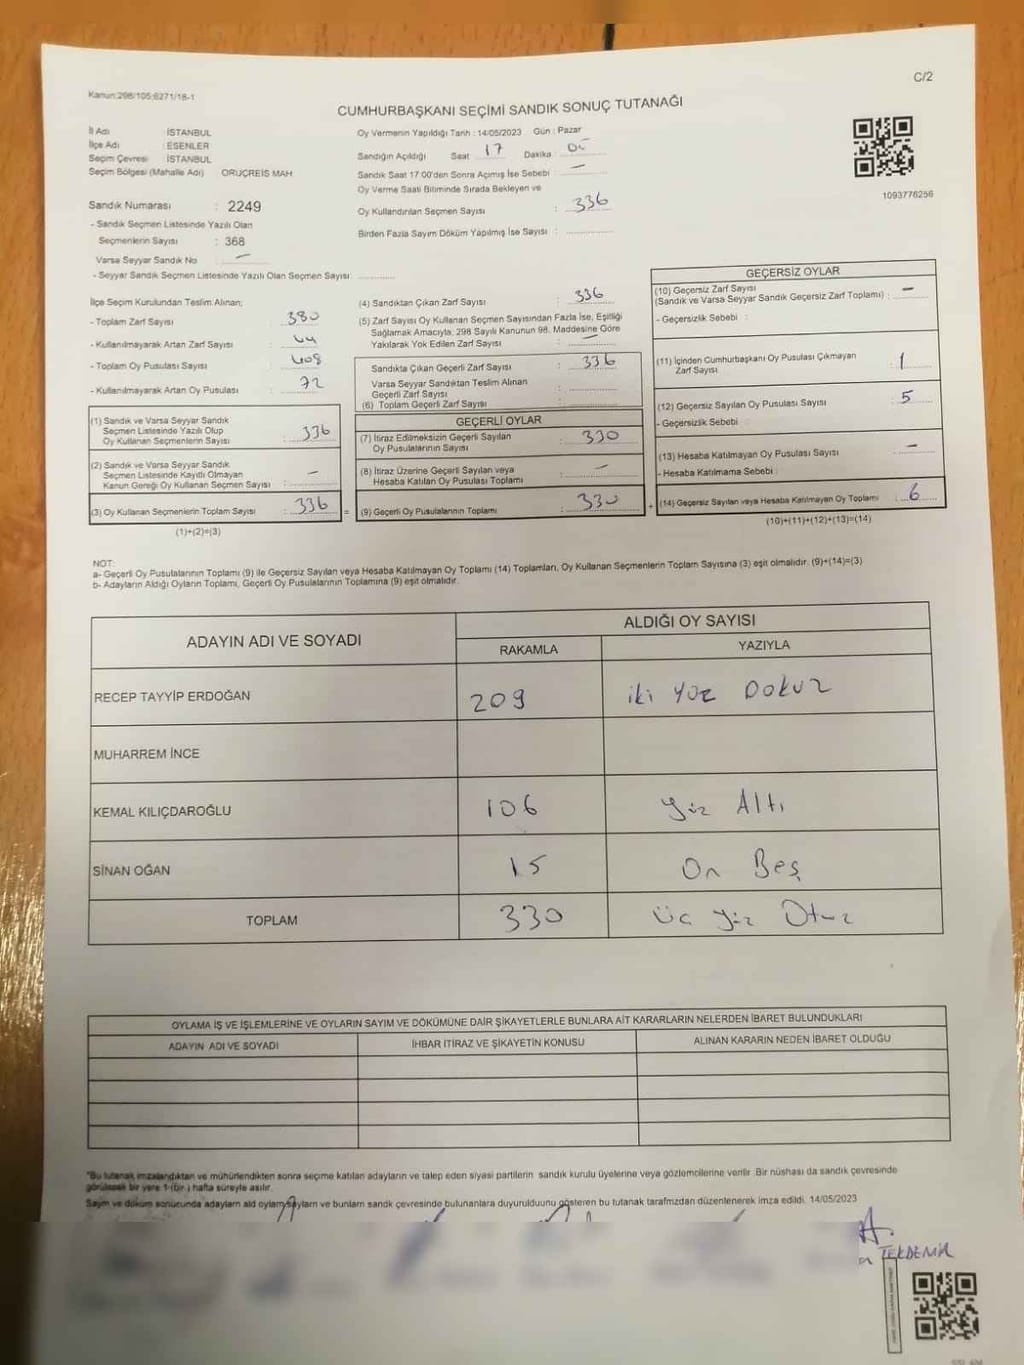 C/2
Kanun:298/105;6271/18-1
CUMHURBAŞKANI SEÇİMİ SANDIK SONUÇ TUTANAĞI
İl Adı : İSTANBUL
İlçe Adı : ESENLER
Seçim Çevresi : İSTANBUL
Seçim Bölgesi (Mahalle Adı) ORUÇREİS MAH
Sandık Numarası : 2249
- Sandık Seçmen Listesinde Yazılı Olan
Seçmenlerin Sayısı : 368
Varsa Seyyar Sandık No : —
- Seyyar Sandık Seçmen Listesinde Yazılı Olan Seçmen Sayısı:
Oy Vermenin Yapıldığı Tarih : 14/05/2023 Gün : Pazar
Sandığın Açıldığı Saat : 17 Dakika :
Sandık Saat 17:00'den Sonra Açımış İse Sebebi : —
Oy Verme Saati Bitiminde Sırada Bekleyen ve
Oy Kullandırılan Seçmen Sayısı : 336
Birden Fazla Sayım Döküm Yapılmış İse Sayısı :
1093776256
İlçe Seçim Kurulundan Teslim Alınan;
- Toplam Zarf Sayısı : 380
- Kullanılmayarak Artan Zarf Sayısı : 44
- Toplam Oy Pusulası Sayısı : 408
- Kullanılmayarak Artan Oy Pusulası : 72
(1) Sandık ve Varsa Seyyar Sandık
Seçmen Listesinde Yazılı Olup
Oy Kullanan Seçmenlerin Sayısı : 336
(2) Sandık ve Varsa Seyyar Sandık
Seçmen Listesinde Kayıtlı Olmayan
Kanun Gereği Oy Kullanan Seçmen Sayısı : —
(3) Oy Kullanan Seçmenlerin Toplam Sayısı : 336 =
(1)+(2)=(3)
(4) Sandıktan Çıkan Zarf Sayısı : 336
(5) Zarf Sayısı Oy Kullanan Seçmen Sayısından Fazla İse, Eşitliği
Sağlamak Amacıyla, 298 Sayılı Kanunun 98. Maddesine Göre
Yakılarak Yok Edilen Zarf Sayısı : —
Sandıkta Çıkan Geçerli Zarf Sayısı : 336
Varsa Seyyar Sandıktan Teslim Alınan
Geçerli Zarf Sayısı :
(6) Toplam Geçerli Zarf Sayısı :
GEÇERLİ OYLAR
(7) İtiraz Edilmeksizin Geçerli Sayılan
Oy Pusulalarının Sayısı : 330
(8) İtiraz Üzerine Geçerli Sayılan veya
Hesaba Katılan Oy Pusulası Toplamı : —
(9) Geçerli Oy Pusulalarının Toplamı : 330 +
GEÇERSİZ OYLAR
(10) Geçersiz Zarf Sayısı
(Sandık ve Varsa Seyyar Sandık Geçersiz Zarf Toplamı) : —
- Geçersizlik Sebebi :
(11) İçinden Cumhurbaşkanı Oy Pusulası Çıkmayan
Zarf Sayısı : 1
(12) Geçersiz Sayılan Oy Pusulası Sayısı : 5
- Geçersizlik Sebebi :
(13) Hesaba Katılmayan Oy Pusulası Sayısı : —
- Hesaba Katılmama Sebebi :
(14) Geçersiz Sayılan veya Hesaba Katılmayan Oy Toplamı : 6
(10)+(11)+(12)+(13)=(14)
NOT:
a- Geçerli Oy Pusulalarının Toplamı (9) ile Geçersiz Sayılan veya Hesaba Katılmayan Oy Toplamı (14) Toplamları, Oy Kullanan Seçmenlerin Toplam Sayısına (3) eşit olmalıdır. (9)+(14)=(3)
b- Adayların Aldığı Oyların Toplamı, Geçerli Oy Pusulalarının Toplamına (9) eşit olmalıdır.
ADAYIN ADI VE SOYADI ALDIĞI OY SAYISI
RAKAMLA YAZIYLA
RECEP TAYYİP ERDOĞAN 209 iki yüz Dokuz
MUHARREM İNCE
KEMAL KILIÇDAROĞLU 106 Yüz Altı
SİNAN OĞAN 15 On Beş
TOPLAM 330 Üç Yüz Otuz
OYLAMA İŞ VE İŞLEMLERİNE VE OYLARIN SAYIM VE DÖKÜMÜNE DAİR ŞİKAYETLERLE BUNLARA AİT KARARLARIN NELERDEN İBARET BULUNDUKLARI
ADAYIN ADI VE SOYADI İHBAR İTİRAZ VE ŞİKAYETİN KONUSU ALINAN KARARIN NEDEN İBARET OLDUĞU
*Bu tutanak imzalandıktan ve mühürlendikten sonra seçime katılan adayların ve talep eden siyasi partilerin sandık kurulu üyelerine veya gözlemcilerine verilir .Bir nüshası da sandık çevresinde
görülecek bir yere 1 (bir ) hafta süreyle asılır.
Sayım ve döküm sonucunda adayların ald oyların sayıları ve bunların sandk çevresinde bulunanlara duyurulduunu gösteren bu tutanak tarafmzdan düzenlenerek imza edildi. 14/05/2023
TEKDEMİR